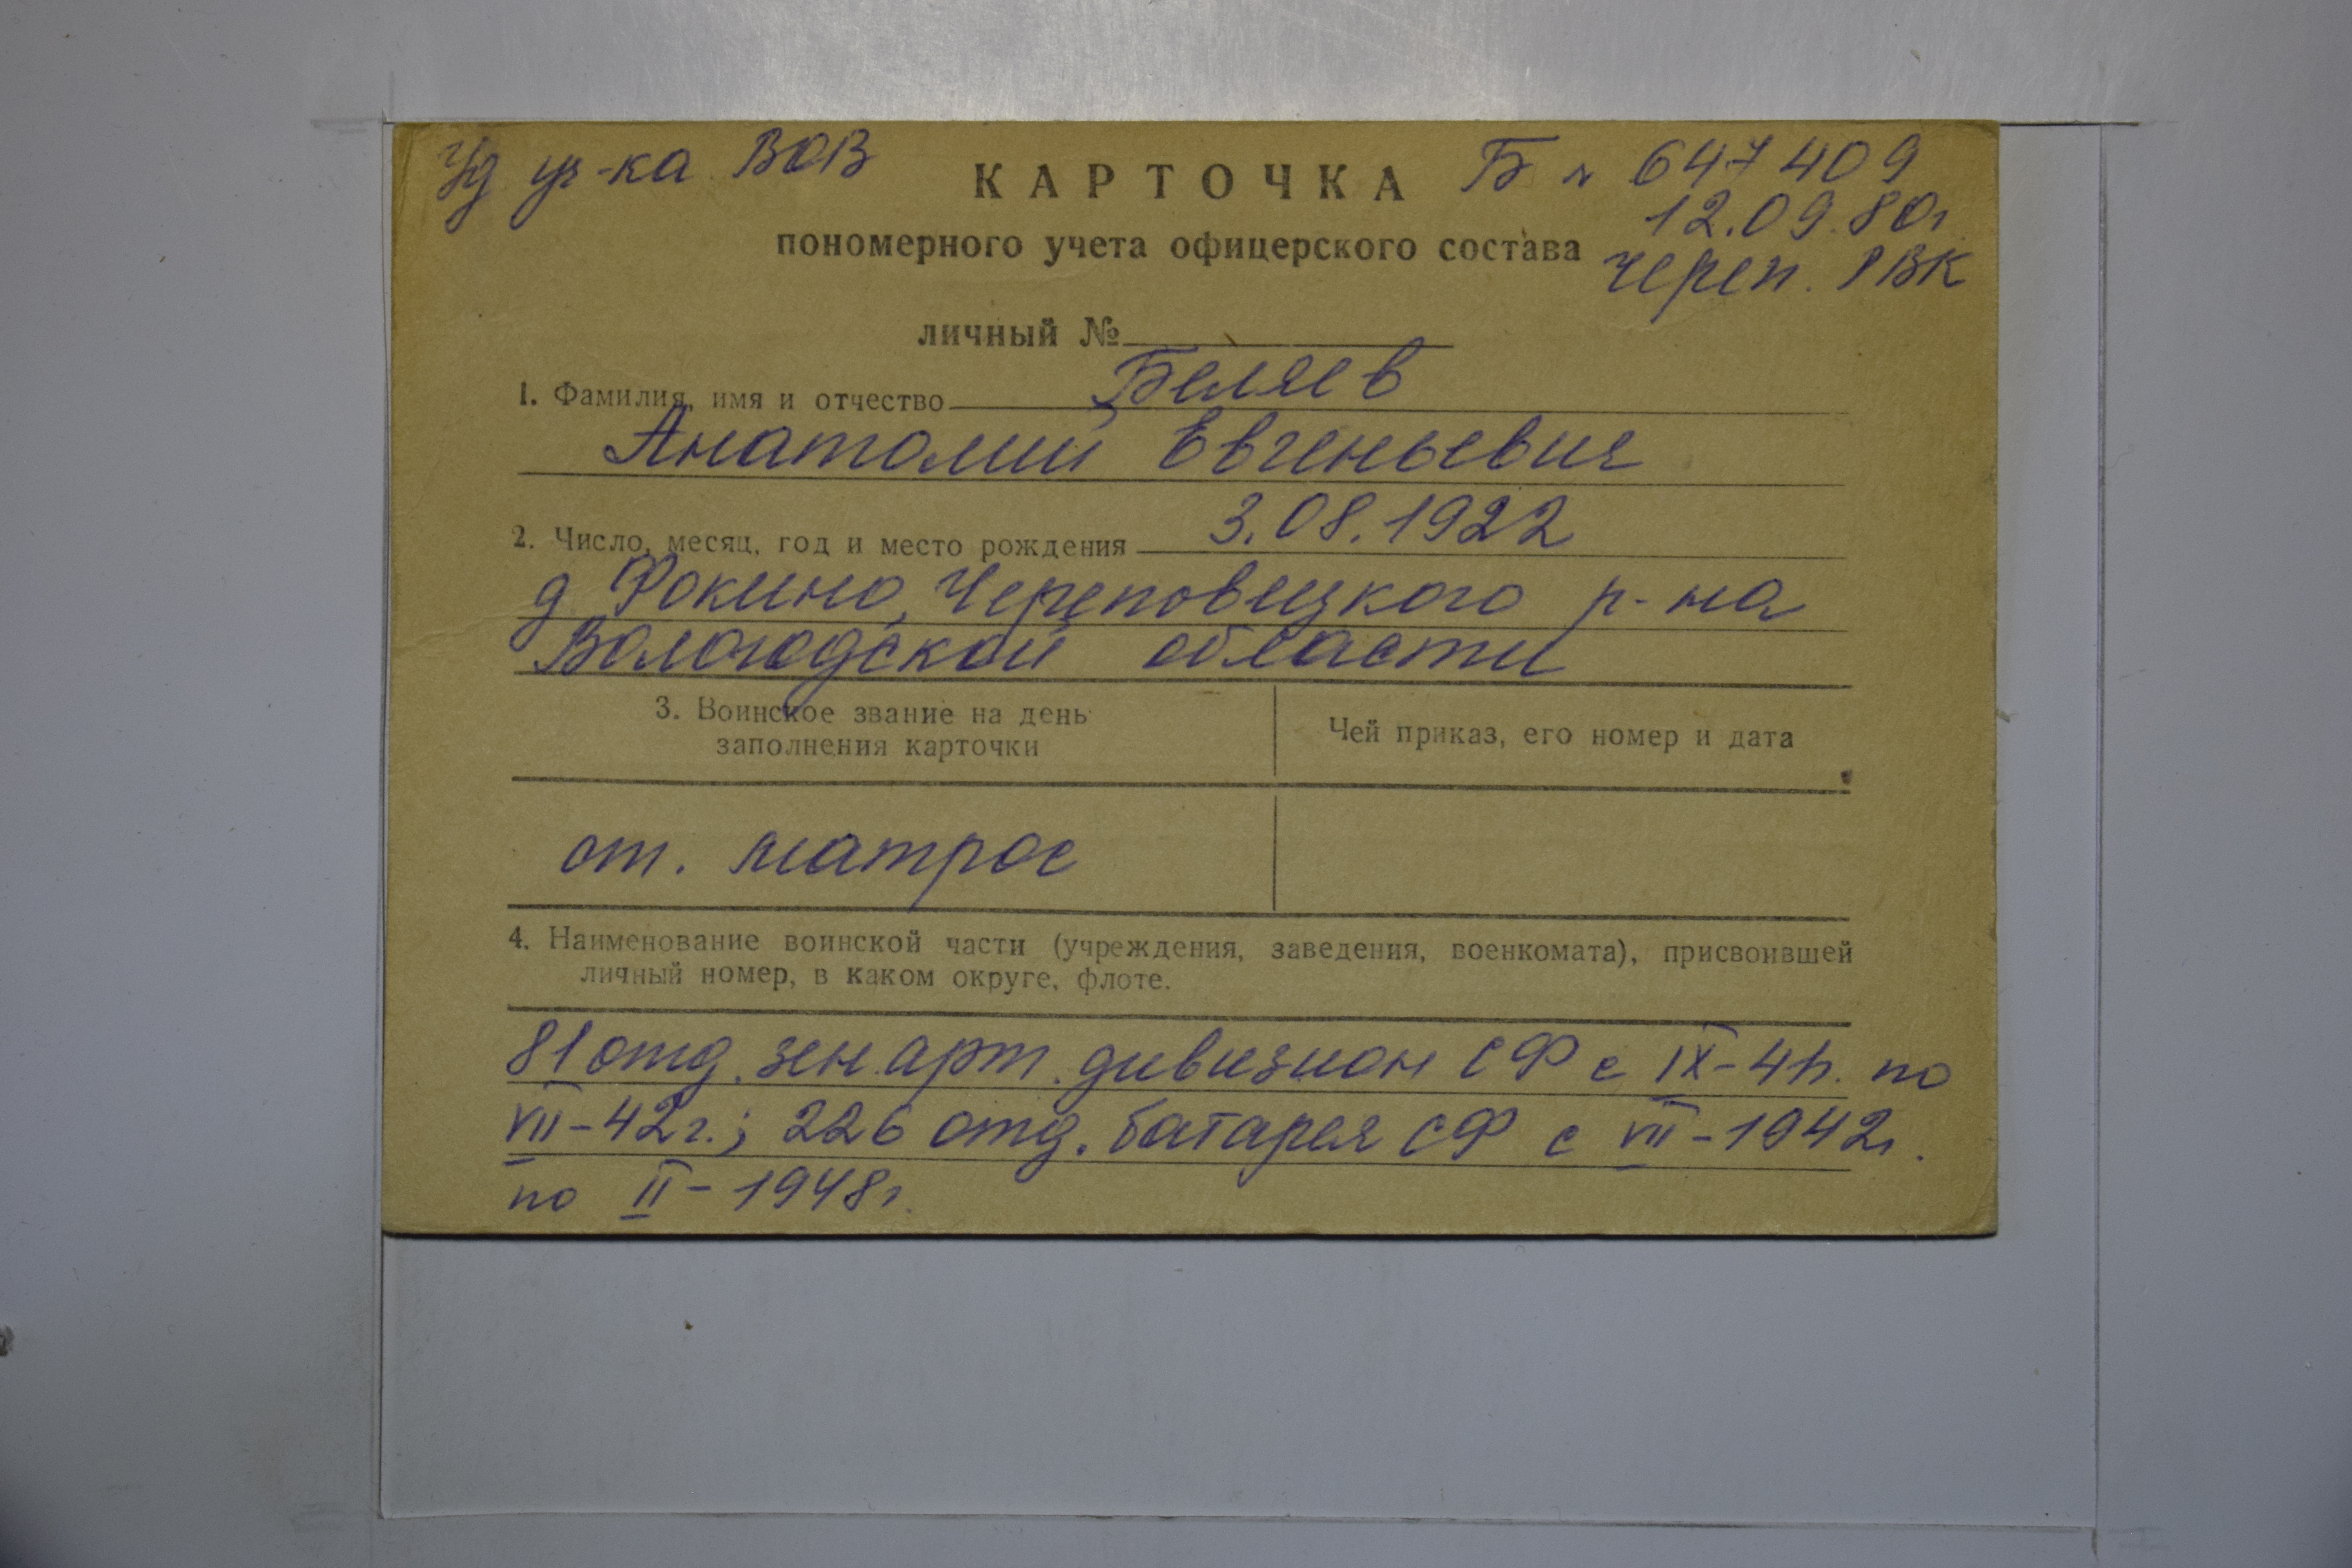 Уд уч-ка ВОВ
КАРТОЧКА
Б № 647409
12.09.80г
пономерного учета офицерского состава
Череп. РВК
личный №
1. Фамилия, имя и отчество Беляев
Анатолий Евгеньевич
2. Число, месяц, год и место рождения 3.08.1922
д Фокино, Череповецкого р-на
Вологодской области
3. Воинское звание на день
заполнения карточки
Чей приказ, его номер и дата
ст. матрос
4. Наименование воинской части (учреждения, заведения, военкомата), присвоившей
личный номер, в каком округе, флоте.
81 отд. зен. арт. дивизион СФ с IX-41г. по
VII-42г.; 226 отд. батарея СФ с VII-1942г.
по II-1948г.